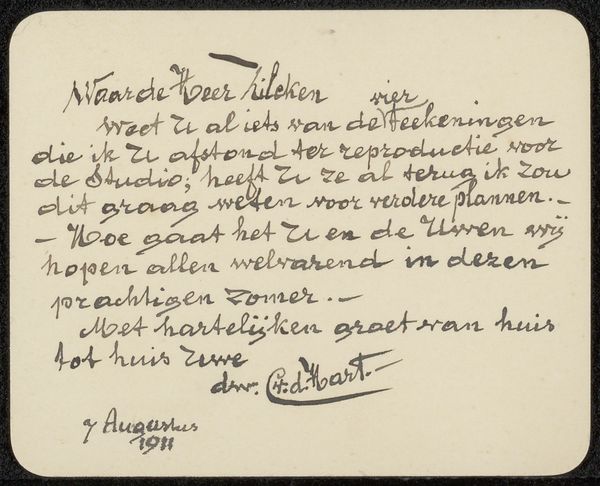 Waarde Heer Zilcken
vier
Weet U al iets van de teekeningen
die ik U afstond ter reproductie voor
de Studio; heeft U ze al terug ik zou
dit graag weten voor verdere plannen. –
– Hoe gaat het U en de Uwen wij
hopen allen welvarend in dezen
prachtigen zomer. –
Met hartelijken groet van huis
tot huis Uwe
dw. C.v.d. Hart. –
7 Augustus
1911